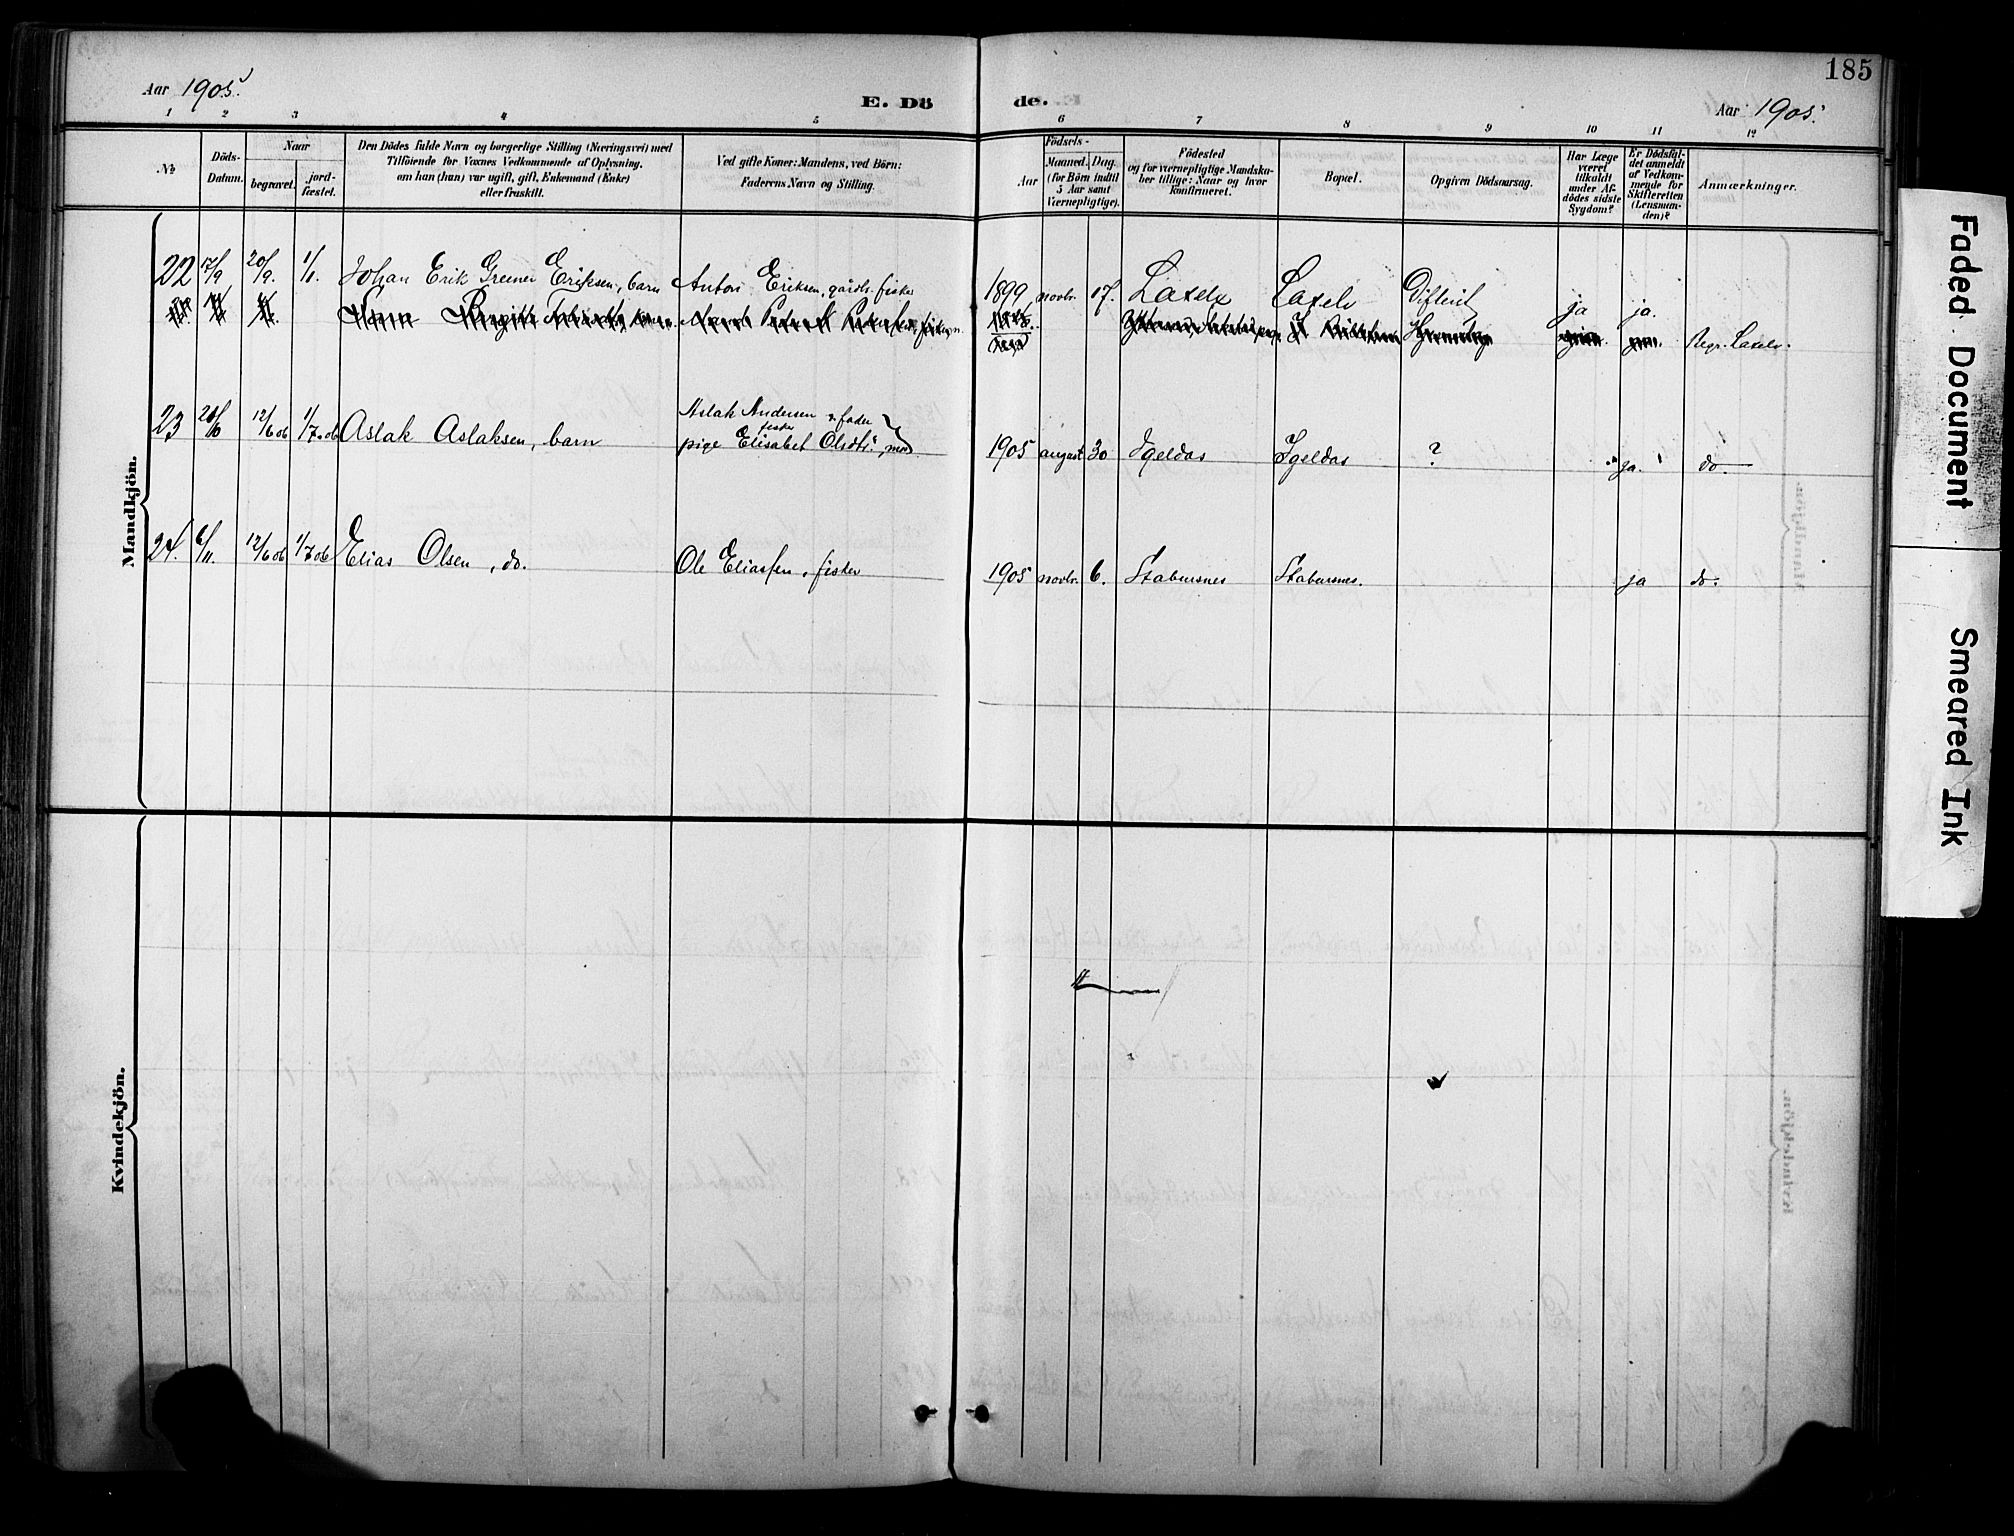 185
Aar 1905.
E. Dö
de.
Aar 1905.
1 2 3 4 5 6 7 8 9 10 11 12
№
Döds-
Datum.
Naar
begravet.
jord-
fæstet.
Den Dödes fulde Navn og borgerlige Stilling (Næringsvei) med
Tilföiende for Voxnes Vedkommende af Oplysning.
om han (hun) var ugift, gift, Enkemand (Enke)
eller fraskilt.
Ved gifte Koner: Mandens, ved Börn:
Faderens Navn og Stilling.
Födsels-
Aar
Maaned. Dag.
(for Börn indtil
5 Aar samt
Værnepligtige).
Födested
og for værnepligtige Mandska-
ber tillige: Naar og hvor
konfirmeret.
Bopæl.
Opgiven Dödsaarsag.
Har Læge
været
tilkaldt
under Af-
dödes sidste
Sygdom?
Er Dödsfal-
det anmeldt
af Vedkom-
mende for
Skifteretten
(Lensman-
den)?
Anmærkninger.
Mandkjön.
22 17/9 20/9. 1/1. Johan Erik Greiner Eriksen, barn Anton Eriksen, gårdbr. fisker 1899 novbr. 17. Laxelv Laxelv Difterit ja ja.
Regr. Laxelv.
23 12/6 06 1/7.06 Aslak Aslaksen, barn
Aslak Andersen fader
fisker
pige Elisabet Olsdtr., mod
1905 august 30 Igeldas Igeldas ? ja. do.
24. 6/11. 12/6 06 1/7 06 Elias Olsen, do. Ole Eliassen, fisker 1905 novbr. 6. Stabursnes Stabursnes. ja do.
Kvindekjön.
Faded Document
Smeared Ink